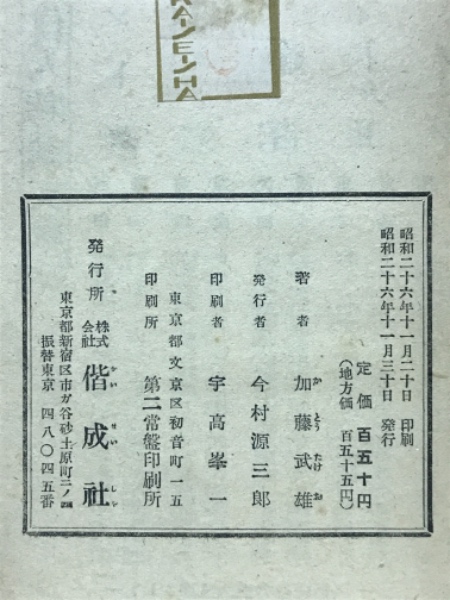 KAISEISHA
昭和二十六年十一月二十日 印刷
昭和二十六年十一月三十日 発行
定価 百五十円
(地方価 百五十五円)
著者 加藤武雄
かとうたけお
発行者 今村源三郎
印刷者 宇高峯一
東京都文京区初音町一五
印刷所 第二常盤印刷所
発行所 株式会社 偕成社
かいせいしや
東京都新宿区市ガ谷砂土原町三ノ四
振替東京 四八〇四五番